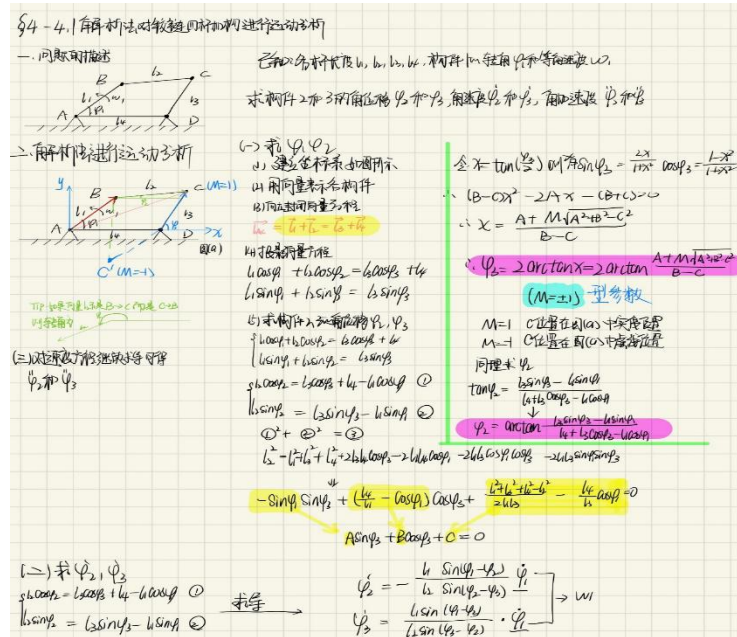 §4-4.1 解析法对铰链四杆机构进行运动分析
一、问题的描述
B l₂ C
l₁ ω₁ l₃
A φ₁ l₄ D
已知:各杆长度l₁, l₂, l₃, l₄, 构件1的转角φ₁和等角速度ω₁
求构件2和3的角位移φ₂和φ₃,角速度φ̇₂和φ̇₃,角加速度φ̈₂和φ̈₃
二、解析法进行运动分析
y B l₂ C (M=1)
l₁ l₃
A l₄ D x
图(a)
C' (M=-1)
(三)对速度方程继续求导可得
φ̈₂和φ̈₃
(一)求φ₃φ₂
(1) 建立坐标系如图所示
(2) 用向量表示各构件
(3) 列出封闭向量方程
l₁+l₂=l₃+l₄
(4) 投影向量方程
l₁cosφ₁+l₂cosφ₂=l₃cosφ₃+l₄
l₁sinφ₁+l₂sinφ₂=l₃sinφ₃
(5) 求构件2,3的角位移φ₂,φ₃
l₁cosφ₁+l₂cosφ₂=l₃cosφ₃+l₄
l₁sinφ₁+l₂sinφ₂=l₃sinφ₃
l₂cosφ₂=l₃cosφ₃+l₄-l₁cosφ₁ ①
l₂sinφ₂=l₃sinφ₃-l₁sinφ₁ ②
①²+②²=③
l₂²=l₁²+l₃²+l₄²+2l₃l₄cosφ₃-2l₁l₄cosφ₁-2l₁l₃cosφ₁cosφ₃-2l₁l₃sinφ₁sinφ₃
-sinφ₁sinφ₃+(l₄/l₁-cosφ₁)cosφ₃+(l₁²+l₃²+l₄²-l₂²)/2l₁l₃-l₄/l₃cosφ₁=0
Asinφ₃+Bcosφ₃+C=0
令x=tan(φ₃/2)则有sinφ₃=2x/(1+x²) cosφ₃=(1-x²)/(1+x²)
∴(B-C)x²-2Ax-(B+C)=0
∴x=(A+M√(A²+B²-C²))/(B-C)
∴φ₃=2arctanx=2arctan(A+M√(A²+B²-C²))/(B-C)
(M=±1) 型参数
M=1 C位置在图(a)中实线位置
M=-1 C位置在图(a)中虚线位置
同理求φ₂
tanφ₂=(l₃sinφ₃-l₁sinφ₁)/(l₄+l₃cosφ₃-l₁cosφ₁)
φ₂=arctan(l₃sinφ₃-l₁sinφ₁)/(l₄+l₃cosφ₃-l₁cosφ₁)
(二)求φ̇₂,φ̇₃
l₂cosφ₂=l₃cosφ₃+l₄-l₁cosφ₁ ①
l₂sinφ₂=l₃sinφ₃-l₁sinφ₁ ②
求导
φ̇₂=-l₁sin(φ₁-φ₃)/l₂sin(φ₂-φ₃)·φ̇₁
→ω₁
φ̇₃=l₁sin(φ₁-φ₂)/l₃sin(φ₃-φ₂)·φ̇₁